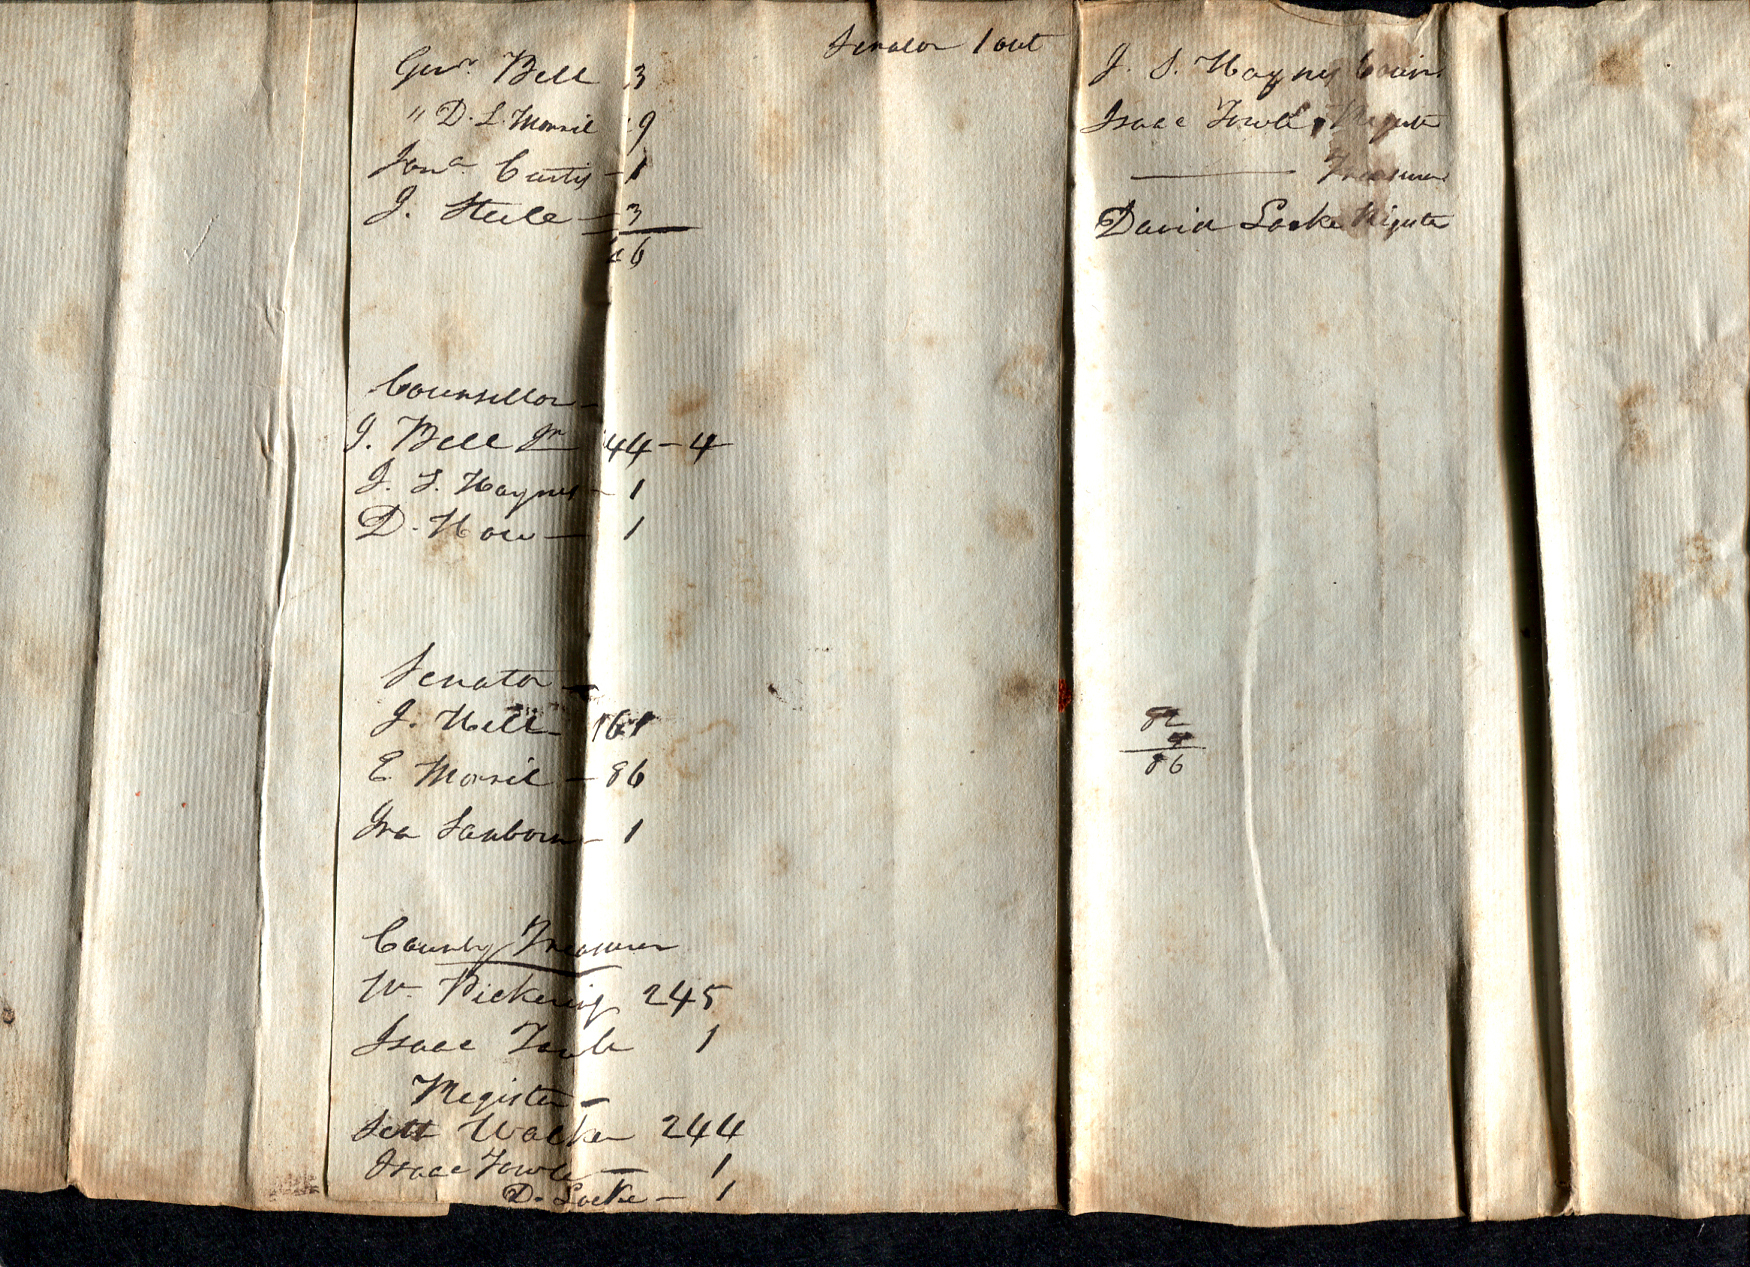 Senator 1 out
Govr. Bell 3
" D. L. Morril 9
Jona. Curtis - 1
J. Steele - 3
6
Counsellor -
J. Bell Jr 44 - 4
J. S. Haynes - 1
D. How - 1
Senator -
J. Hill - 161
E Morril - 86
Ira Sanborn - 1
County Treasurer
Wm Pickering 245
Isaac Towle 1
Register -
Sett Walker 244
Isaac Towle - 1
D. Locke - 1
J. S. Haynes Coun
Isaac Towle Register
Treasurer
David Locke Register
82
4
86